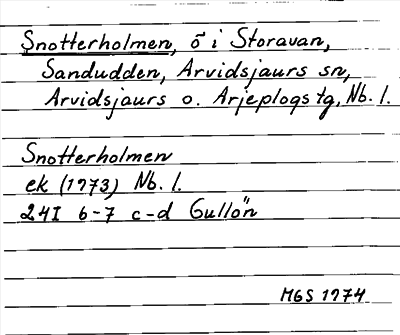 Snotterholmen, ö i Storavan,
Sandudden, Arvidsjaurs sn,
Arvidsjaurs o. Arjeplogs tg, Nb. l.
Snotterholmen
ek (1973) Nb. l.
24I 6-7 c-d Gullön
MGS 1974